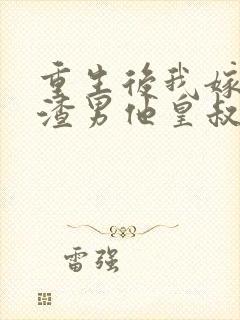 重生後我嫁
渣男他皇叔
雷强